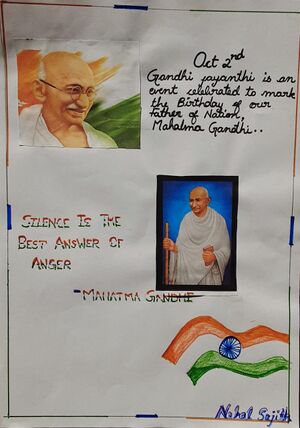 Oct 2nd
Gandhi jayanthi is an
event celebrated to mark
the Birthday of our
Father of Nation,
Mahatma Gandhi..
SILENCE IS THE
BEST ANSWER OF
ANGER
-MAHATMA GANDHI
Nehal Sajith